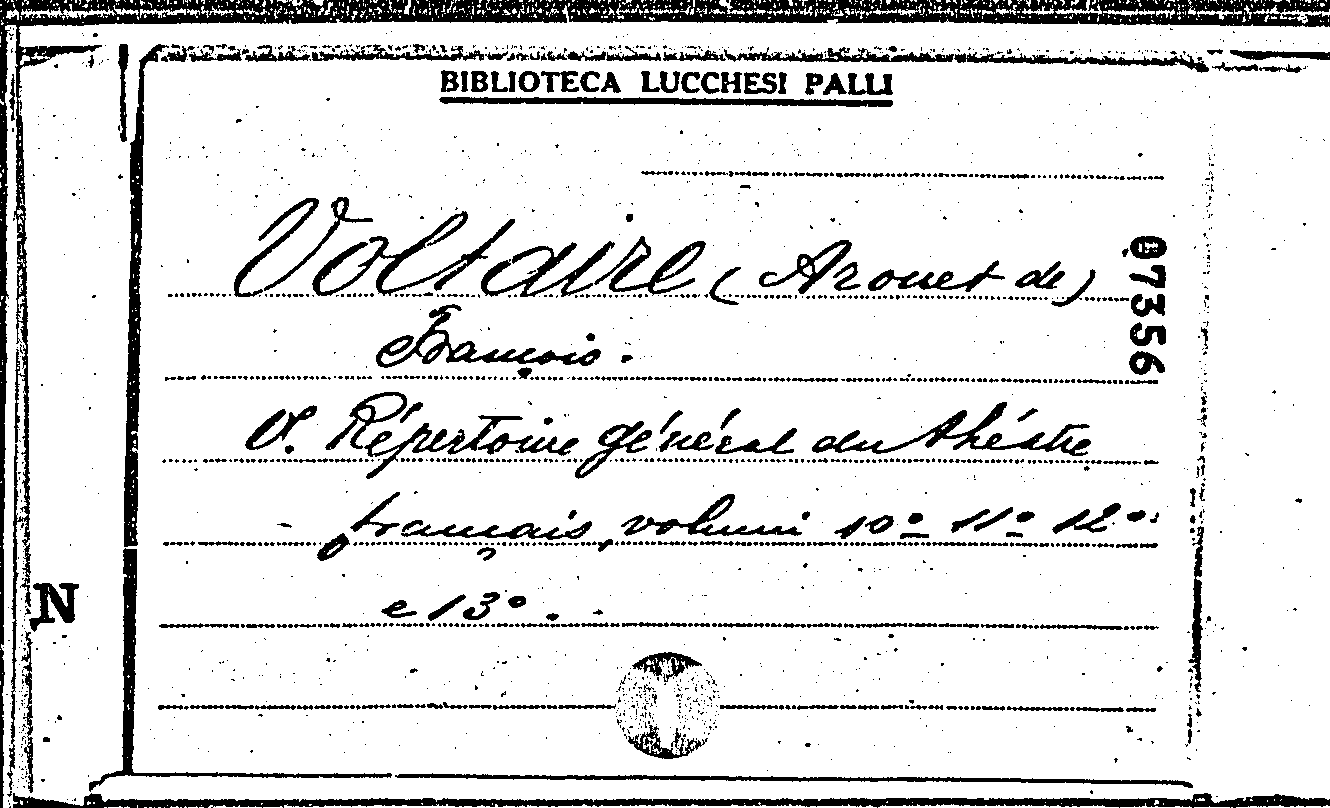 BIBLIOTECA LUCCHESI PALLI
Voltaire (Arouet de)
François.
V. Répertoire général du théâtre
français, volumi 10º 11º 12º
e 13º.
07356
N